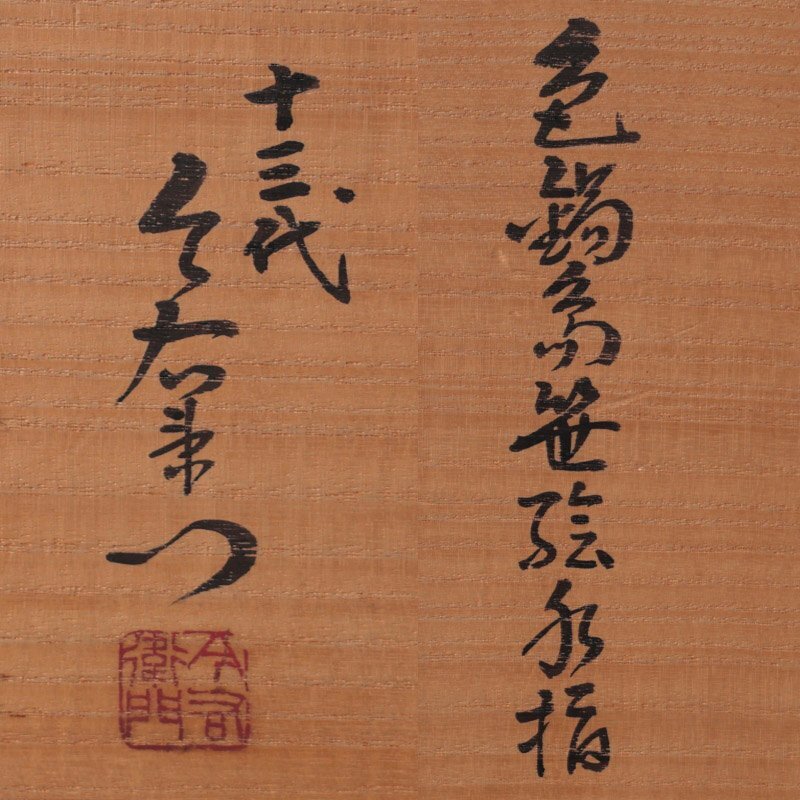 色鍋島笹絵水指
十三代
今右衛門
今右衛門